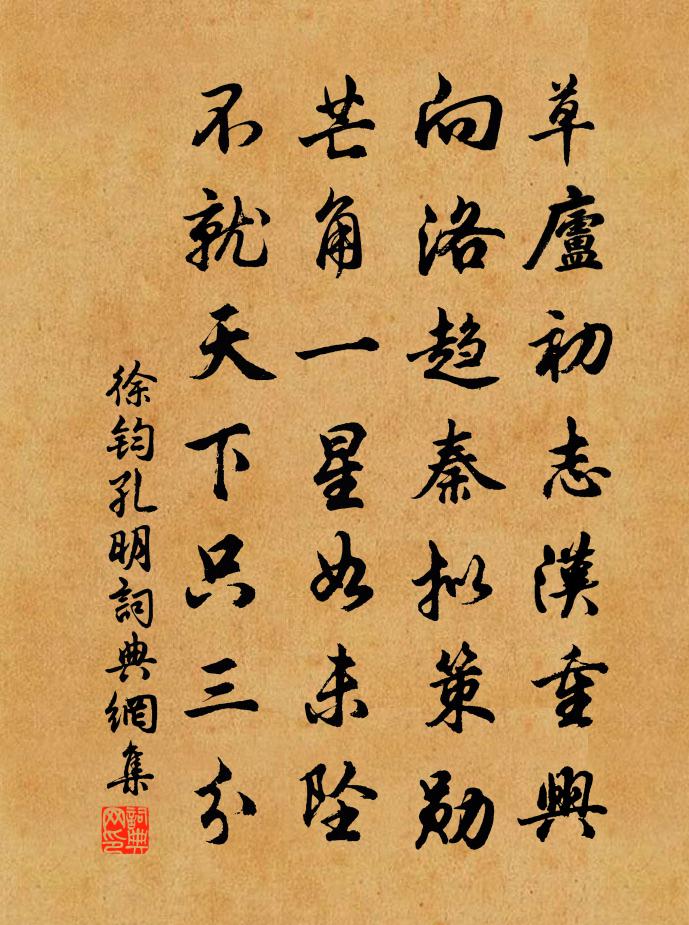 草廬初志漢重興
向洛趋秦拟策勋
芒角一星如未坠
不就天下只三分
徐钧孔明詞典網集
詞典网印